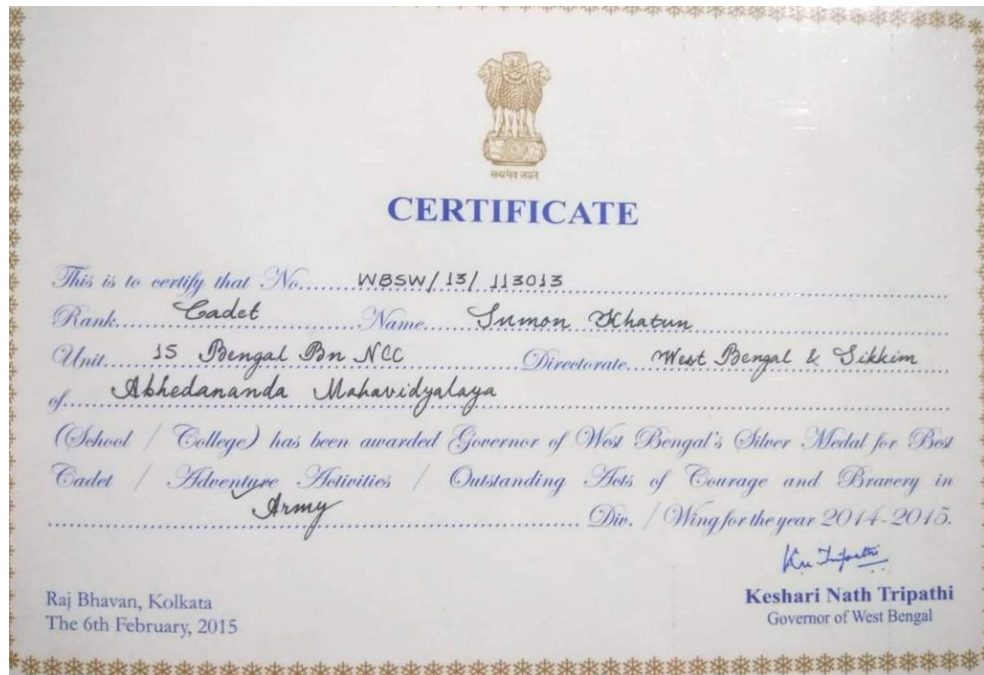 सत्यमेव जयते
CERTIFICATE
This is to certify that No..... WBSW/13/113013
Rank..... Cadet Name..... Sumon Khatun
Unit..... 15 Bengal Bn NCC Directorate.... West Bengal & Sikkim
of..... Abhedananda Mahavidyalaya
(School / College) has been awarded Governor of West Bengal's Silver Medal for Best
Cadet / Adventure Activities / Outstanding Acts of Courage and Bravery in
Army Div. / Wing for the year 2014-2015.
Raj Bhavan, Kolkata
The 6th February, 2015
Keshari Nath Tripathi
Governor of West Bengal